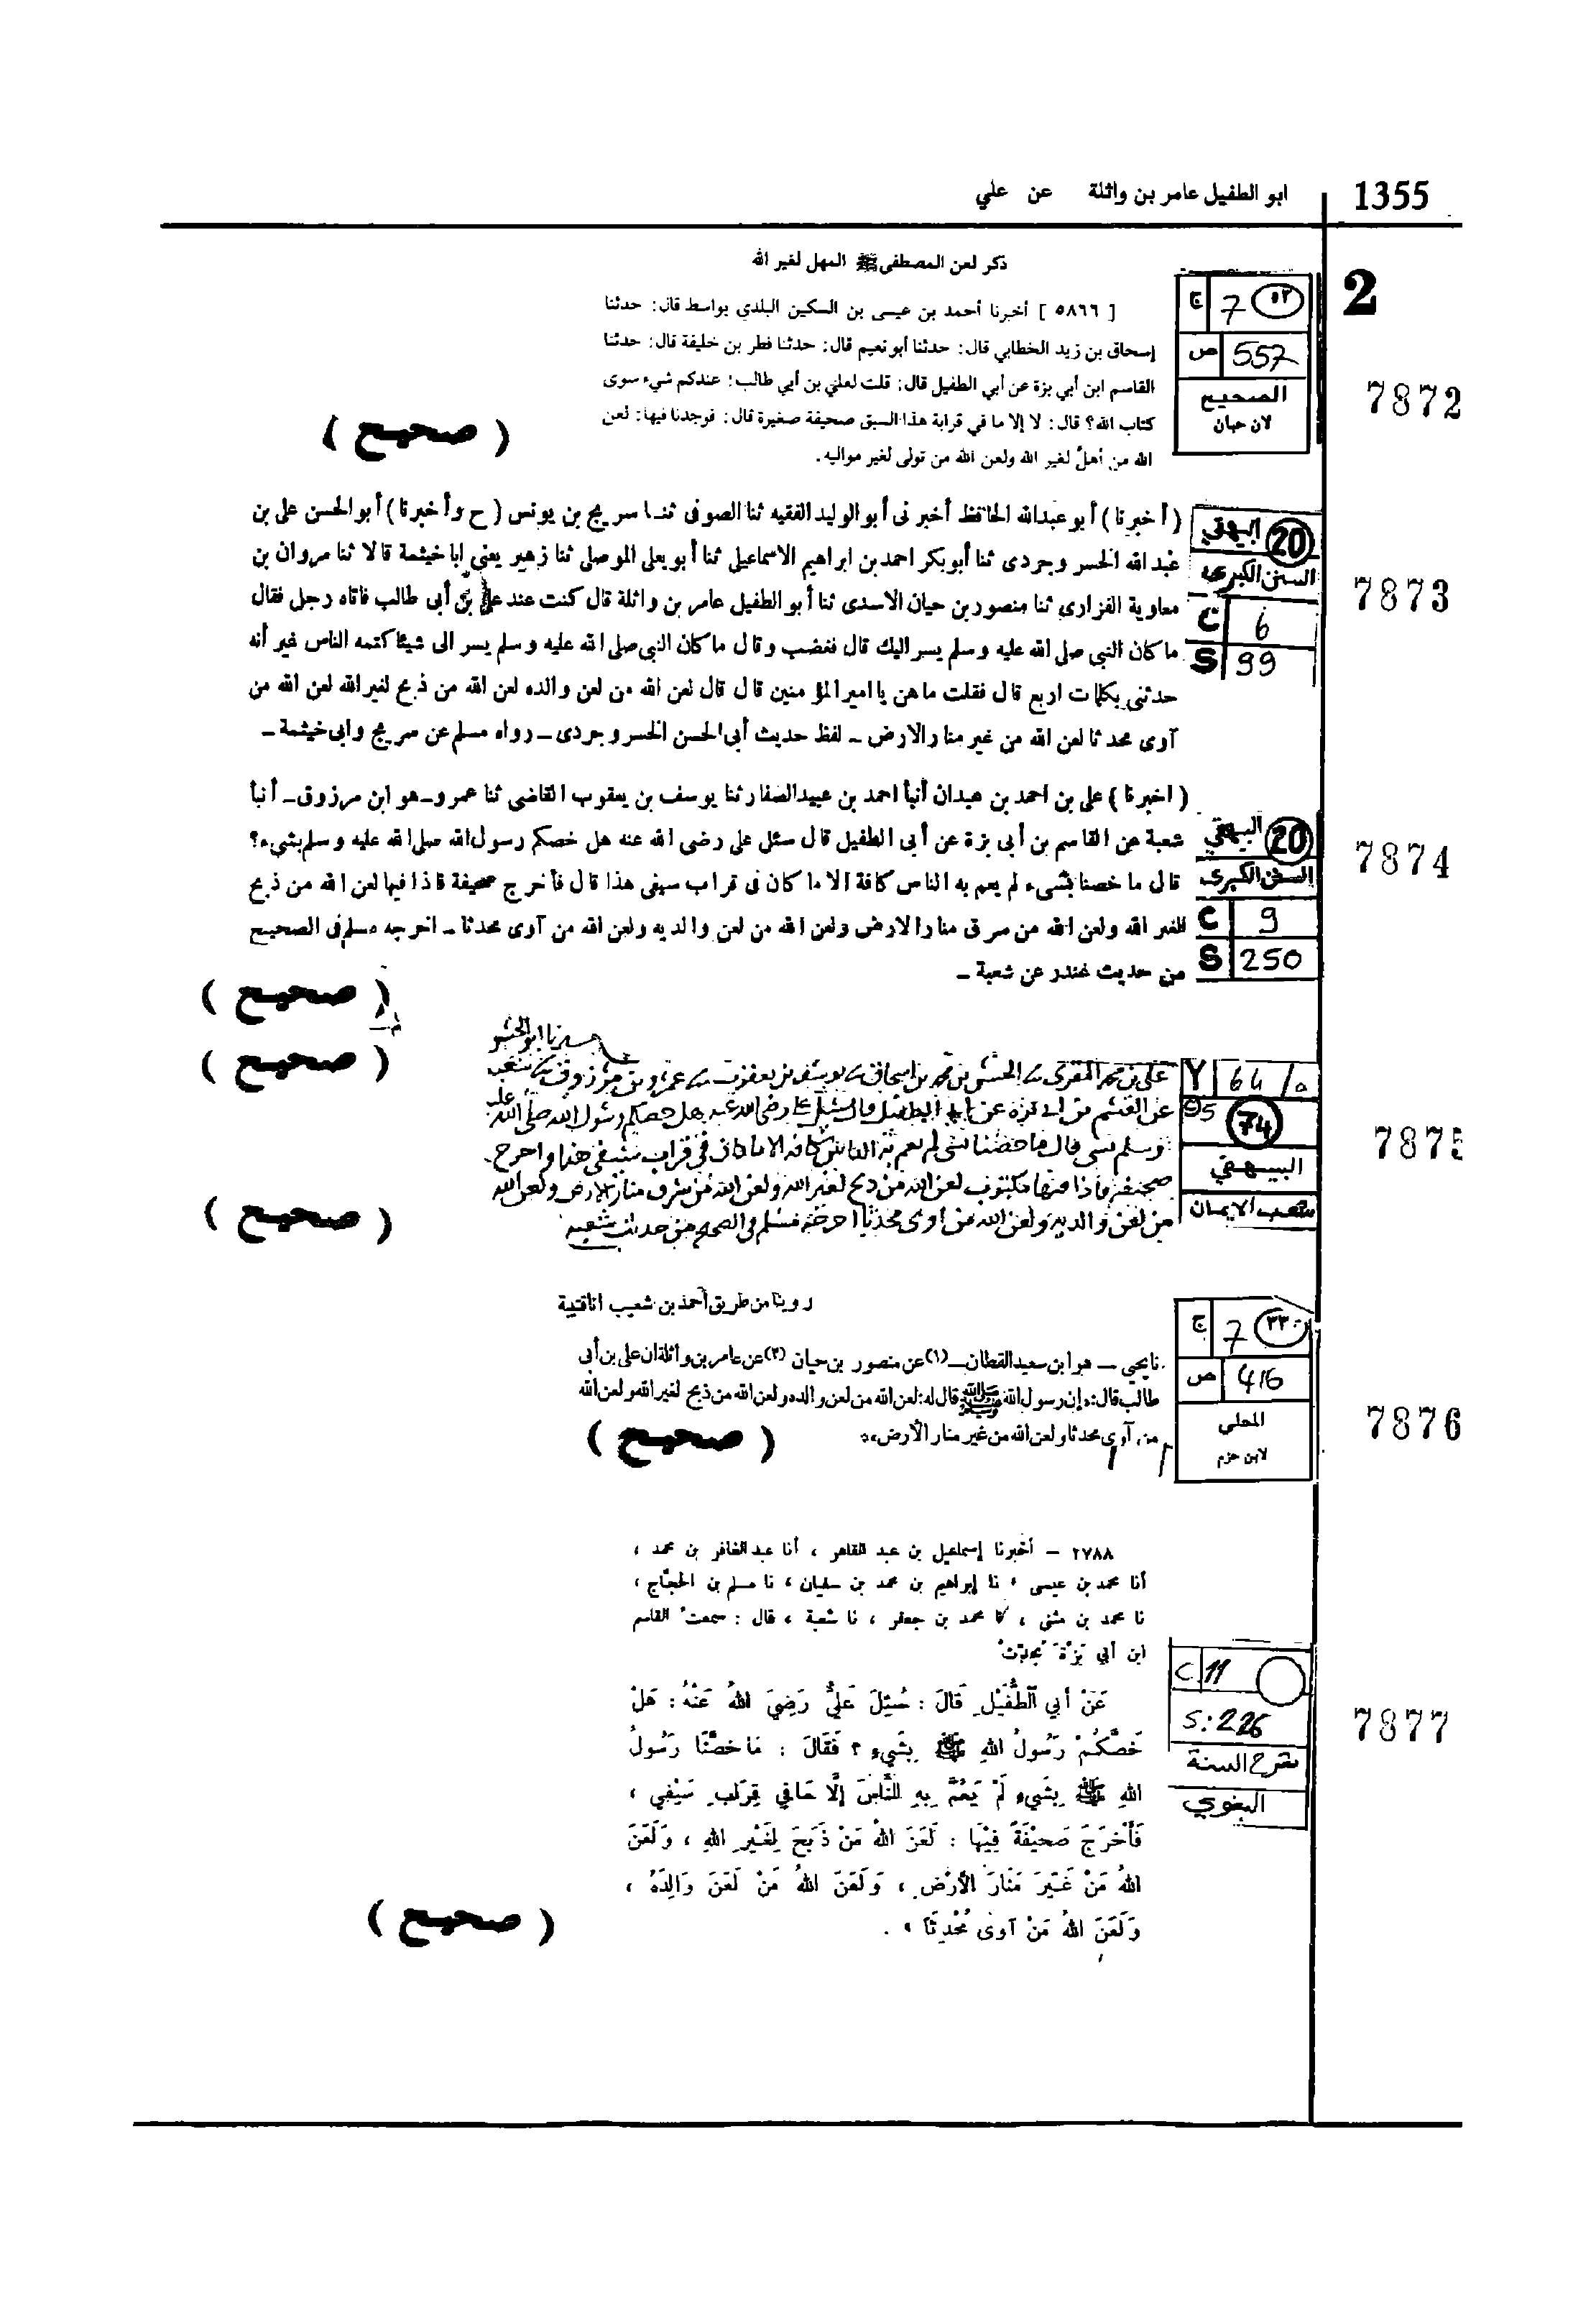 ابو الطفيل عامر بن واثلة عن علي
1355
2
ذكر لعن المصطفى ﷺ المهل لغير الله
[ ٥٨٦٦ ] أخبرنا أحمد بن عيسى بن السكين البلدي بواسط قال: حدثنا
إسحاق بن زيد الخطابي قال: حدثنا أبو نعيم قال: حدثنا فطر بن خليفة قال: حدثنا
القاسم ابن أبي بزة عن أبي الطفيل قال: قلت لعلي بن أبي طالب: عندكم شيء سوى
كتاب الله؟ قال: لا إلا ما في قرابة هذا السبق صحيفة صغيرة قال: فوجدنا فيها: لعن
الله من أهل لغير الله ولعن الله من تولى لغير مواليه.
( صحيح )
ج 7 ٥٢
ص 557
الصحيح
لان حبان
7872
( أخبرنا ) أبو عبدالله الحافظ أخبرنى أبو الوليد الفقيه ثنا الصوفى ثنا سريج بن يونس ( ح وأخبرنا ) أبو الحسن على بن
عبد الله الخسروجردى ثنا أبو بكر احمد بن ابراهيم الاسماعيلى ثنا أبو يعلى الموصلى ثنا زهير يعنى ابا خيثمة قالا ثنا مروان بن
معاوية الفزارى ثنا منصور بن حيان الاسدى ثنا أبو الطفيل عامر بن واثلة قال كنت عند على بن أبى طالب فاتاه رجل فقال
ما كان النبى صلى الله عليه وسلم يسر اليك قال فغضب وقال ما كان النبى صلى الله عليه وسلم يسر الى شيئا كتمه الناس غير أنه
حدثنى بكلمات اربع قال فقلت ما هن يا امير المؤمنين قال قال لعن الله من لعن والده لعن الله من ذبح لغير الله لعن الله من
آوى محدثا لعن الله من غير منار الارض ــ لفظ حديث أبى الحسن الخسروجردى ــ رواه مسلم عن سريج وابى خيثمة ــ
البيهقي 20
السنن الكبرى
C 6
S 99
7873
( اخبرنا ) على بن احمد بن عبدان أنبأ احمد بن عبيد الصفار ثنا يوسف بن يعقوب القاضى ثنا عمرو ــ هو ابن مرزوق ــ أنبأ
شعبة عن القاسم بن أبى بزة عن أبى الطفيل قال سئل على رضى الله عنه هل خصكم رسول الله صلى الله عليه وسلم بشىء؟
قال ما خصنا بشىء لم يعم به الناس كافة الا ما كان فى قراب سيفى هذا قال فأخرج صحيفة فاذا فيها لعن الله من ذبح
لغير الله ولعن الله من سرق منار الارض ولعن الله من لعن والديه ولعن الله من آوى محدثا ــ اخرجه مسلم فى الصحيح
من حديث غندر عن شعبة ــ
( صحيح )
البيهقي 20
السنن الكبرى
C 9
S 250
7874
( صحيح )
ابو الحسن
على بن محمد المقرى الحسن بن محمد بن اسحاق يوسف بن يعقوب عمرو بن مرزوق شعبة
عن القسم بن ابى بزه عن ابى الطفيل قال سئل على رضى الله عنه هل خصكم رسول الله صلى الله عليه
وسلم بشى قال ما خصنا بشى لم يعم به الناس كافه الا ما كان فى قراب سيفى هذا واخرج
صحيفة فاذا فيها مكتوب لعن الله من ذبح لغير الله ولعن الله من سرق منار الارض ولعن الله
من لعن والديه ولعن الله من اوى محدثا اخرجه مسلم فى الصحيح من حديث شعبه
( صحيح )
Y 64
74
البيهقي
شعب الايمان
7875
روينا من طريق أحمد بن شعيب انا قتيبة
نا يحيى ــ هو ابن سعيد القطان ــ (١) عن منصور بن حيان (٢) عن عامر بن واثلة ان على بن أبى
طالب قال: «إن رسول الله ﷺ قال له: لعن الله من لعن والده ولعن الله من ذبح لغير الله ولعن الله
من آوى محدثا ولعن الله من غير منار الأرض»
( صحيح )
ج 7
ص 416
المحلي
لابن حزم
7876
٢٧٨٨ – أخبرنا إسماعيل بن عبد القاهر ، أنا عبد الغافر بن محمد ،
أنا محمد بن عيسى ، نا إبراهيم بن محمد بن سفيان ، نا مسلم بن الحجّاج ،
نا محمد بن مثنى ، نا محمد بن جعفر ، نا شعبة ، قال : سمعت القاسم
ابن أبي بَزّةَ يُحدّث
عَنْ أبي الطُّفَيْلِ قَالَ : سُئِلَ عَلِيٌّ رَضِيَ اللهُ عَنْهُ : هَلْ
خَصَّكُمْ رَسُولُ اللهِ ﷺ بِشَيءٍ ؟ فَقَالَ : مَا خَصَّنَا رَسُولُ
اللهِ ﷺ بِشَيءٍ لَمْ يَعُمَّ بِهِ النَّاسَ إلَّا مَا في قِرَابِ سَيْفِي ،
فَأَخْرَجَ صَحِيْفَةً فِيْهَا : لَعَنَ اللهُ مَنْ ذَبَحَ لِغَيْرِ اللهِ ، وَلَعَنَ
اللهُ مَنْ غَيَّرَ مَنَارَ الأَرْضِ ، وَلَعَنَ اللهُ مَنْ لَعَنَ وَالِدَهُ ،
وَلَعَنَ اللهُ مَنْ آوَى مُحْدِثَاً » .
( صحيح )
C 11
S: 226
شرح السنة
البغوي
7877